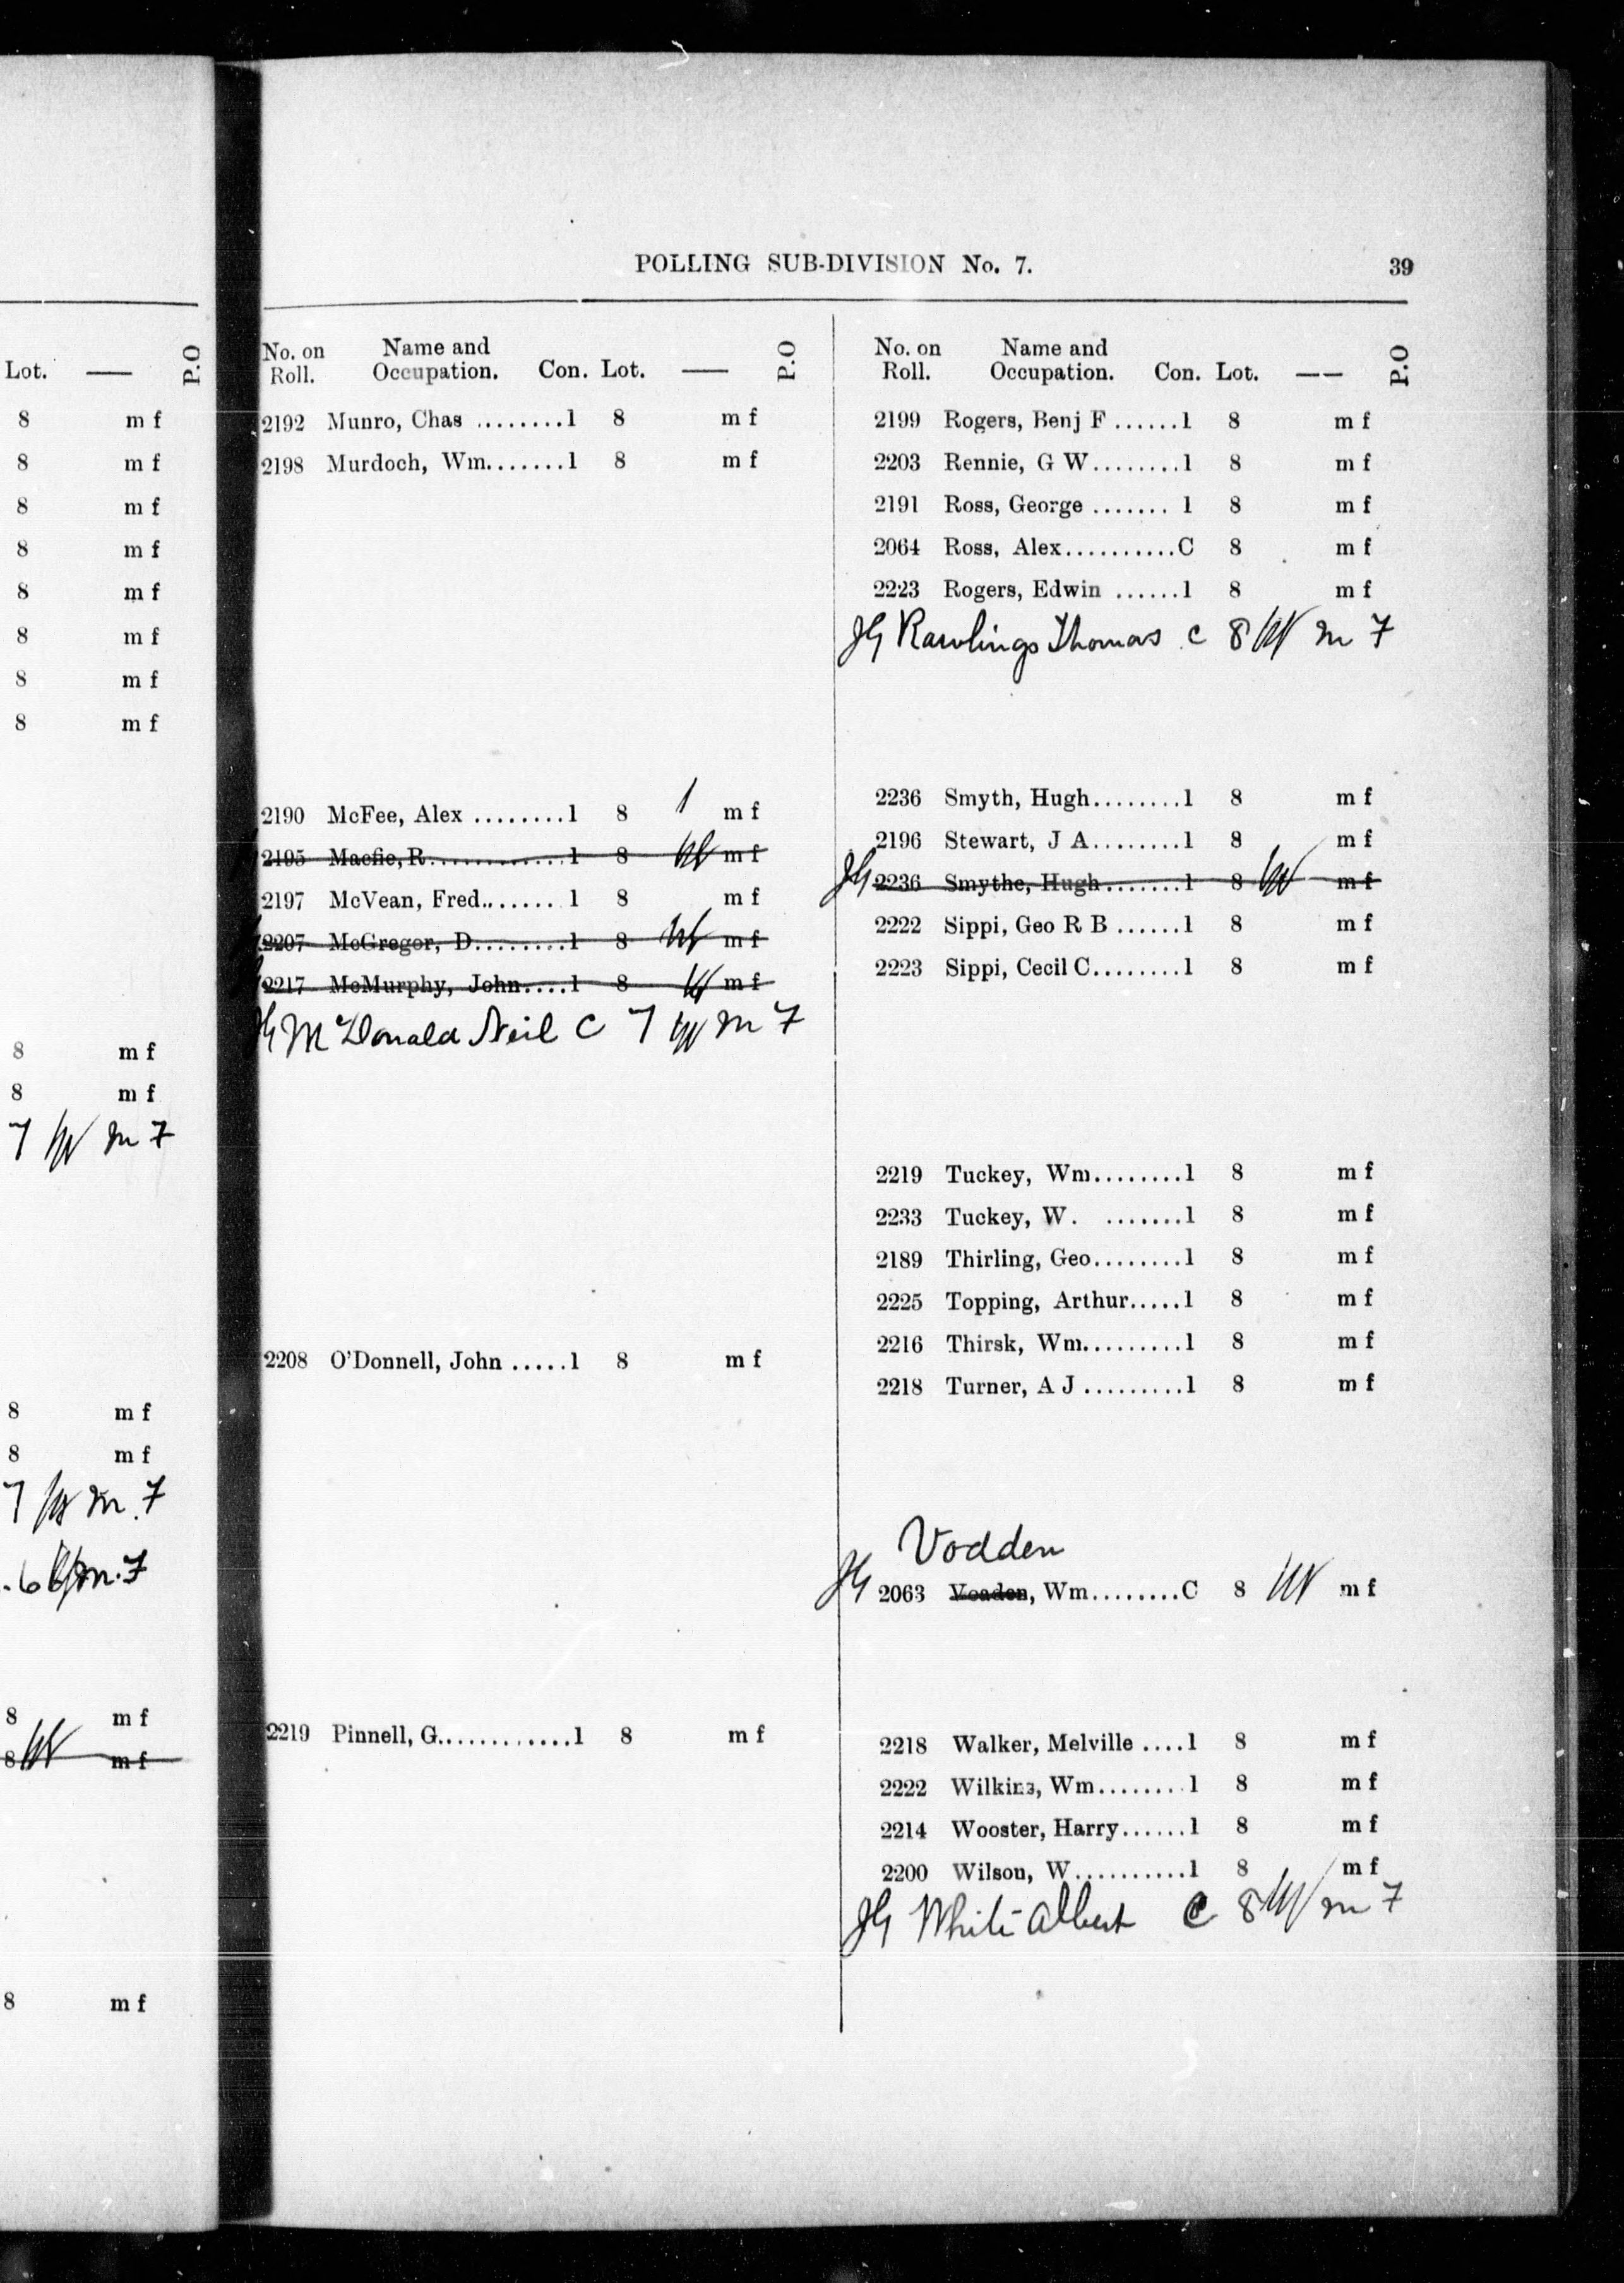 Lot. —— P.O
8 m f
8 m f
8 m f
8 m f
8 m f
8 m f
8 m f
8 m f
8 m f
8 m f
7 m 7
8 m f
8 m f
7 m. 7
. 6 m. 7
8 m f
8 m f
8 m f
POLLING SUB-DIVISION No. 7. 39
No. on Name and P.O
Roll. Occupation. Con. Lot. ——
2192 Munro, Chas ........1 8 m f
2198 Murdoch, Wm.......1 8 m f
2190 McFee, Alex ........1 8 1 m f
2195 Macfie, R.............1 8 m f
2197 McVean, Fred....... 1 8 m f
2207 McGregor, D.........1 8 m f
2217 McMurphy, John....1 8 m f
JG McDonald Neil C 7 m 7
2208 O'Donnell, John .....1 8 m f
2219 Pinnell, G.............1 8 m f
No. on Name and P.O
Roll. Occupation. Con. Lot. — —
2199 Rogers, Benj F ......1 8 m f
2203 Rennie, G W........1 8 m f
2191 Ross, George ....... 1 8 m f
2064 Ross, Alex..........C 8 m f
2223 Rogers, Edwin ......1 8 m f
JG Rawlings Thomas c 8 m 7
2236 Smyth, Hugh........1 8 m f
2196 Stewart, J A........1 8 m f
JG 2236 Smythe, Hugh.......1 8 m f
2222 Sippi, Geo R B ......1 8 m f
2223 Sippi, Cecil C........1 8 m f
2219 Tuckey, Wm........1 8 m f
2233 Tuckey, W. .......1 8 m f
2189 Thirling, Geo........1 8 m f
2225 Topping, Arthur.....1 8 m f
2216 Thirsk, Wm.........1 8 m f
2218 Turner, A J .........1 8 m f
Vodden
JG 2063 Voaden, Wm........C 8 m f
2218 Walker, Melville ....1 8 m f
2222 Wilkins, Wm........1 8 m f
2214 Wooster, Harry......1 8 m f
2200 Wilson, W..........1 8 m f
JG White Albert C 8 m 7